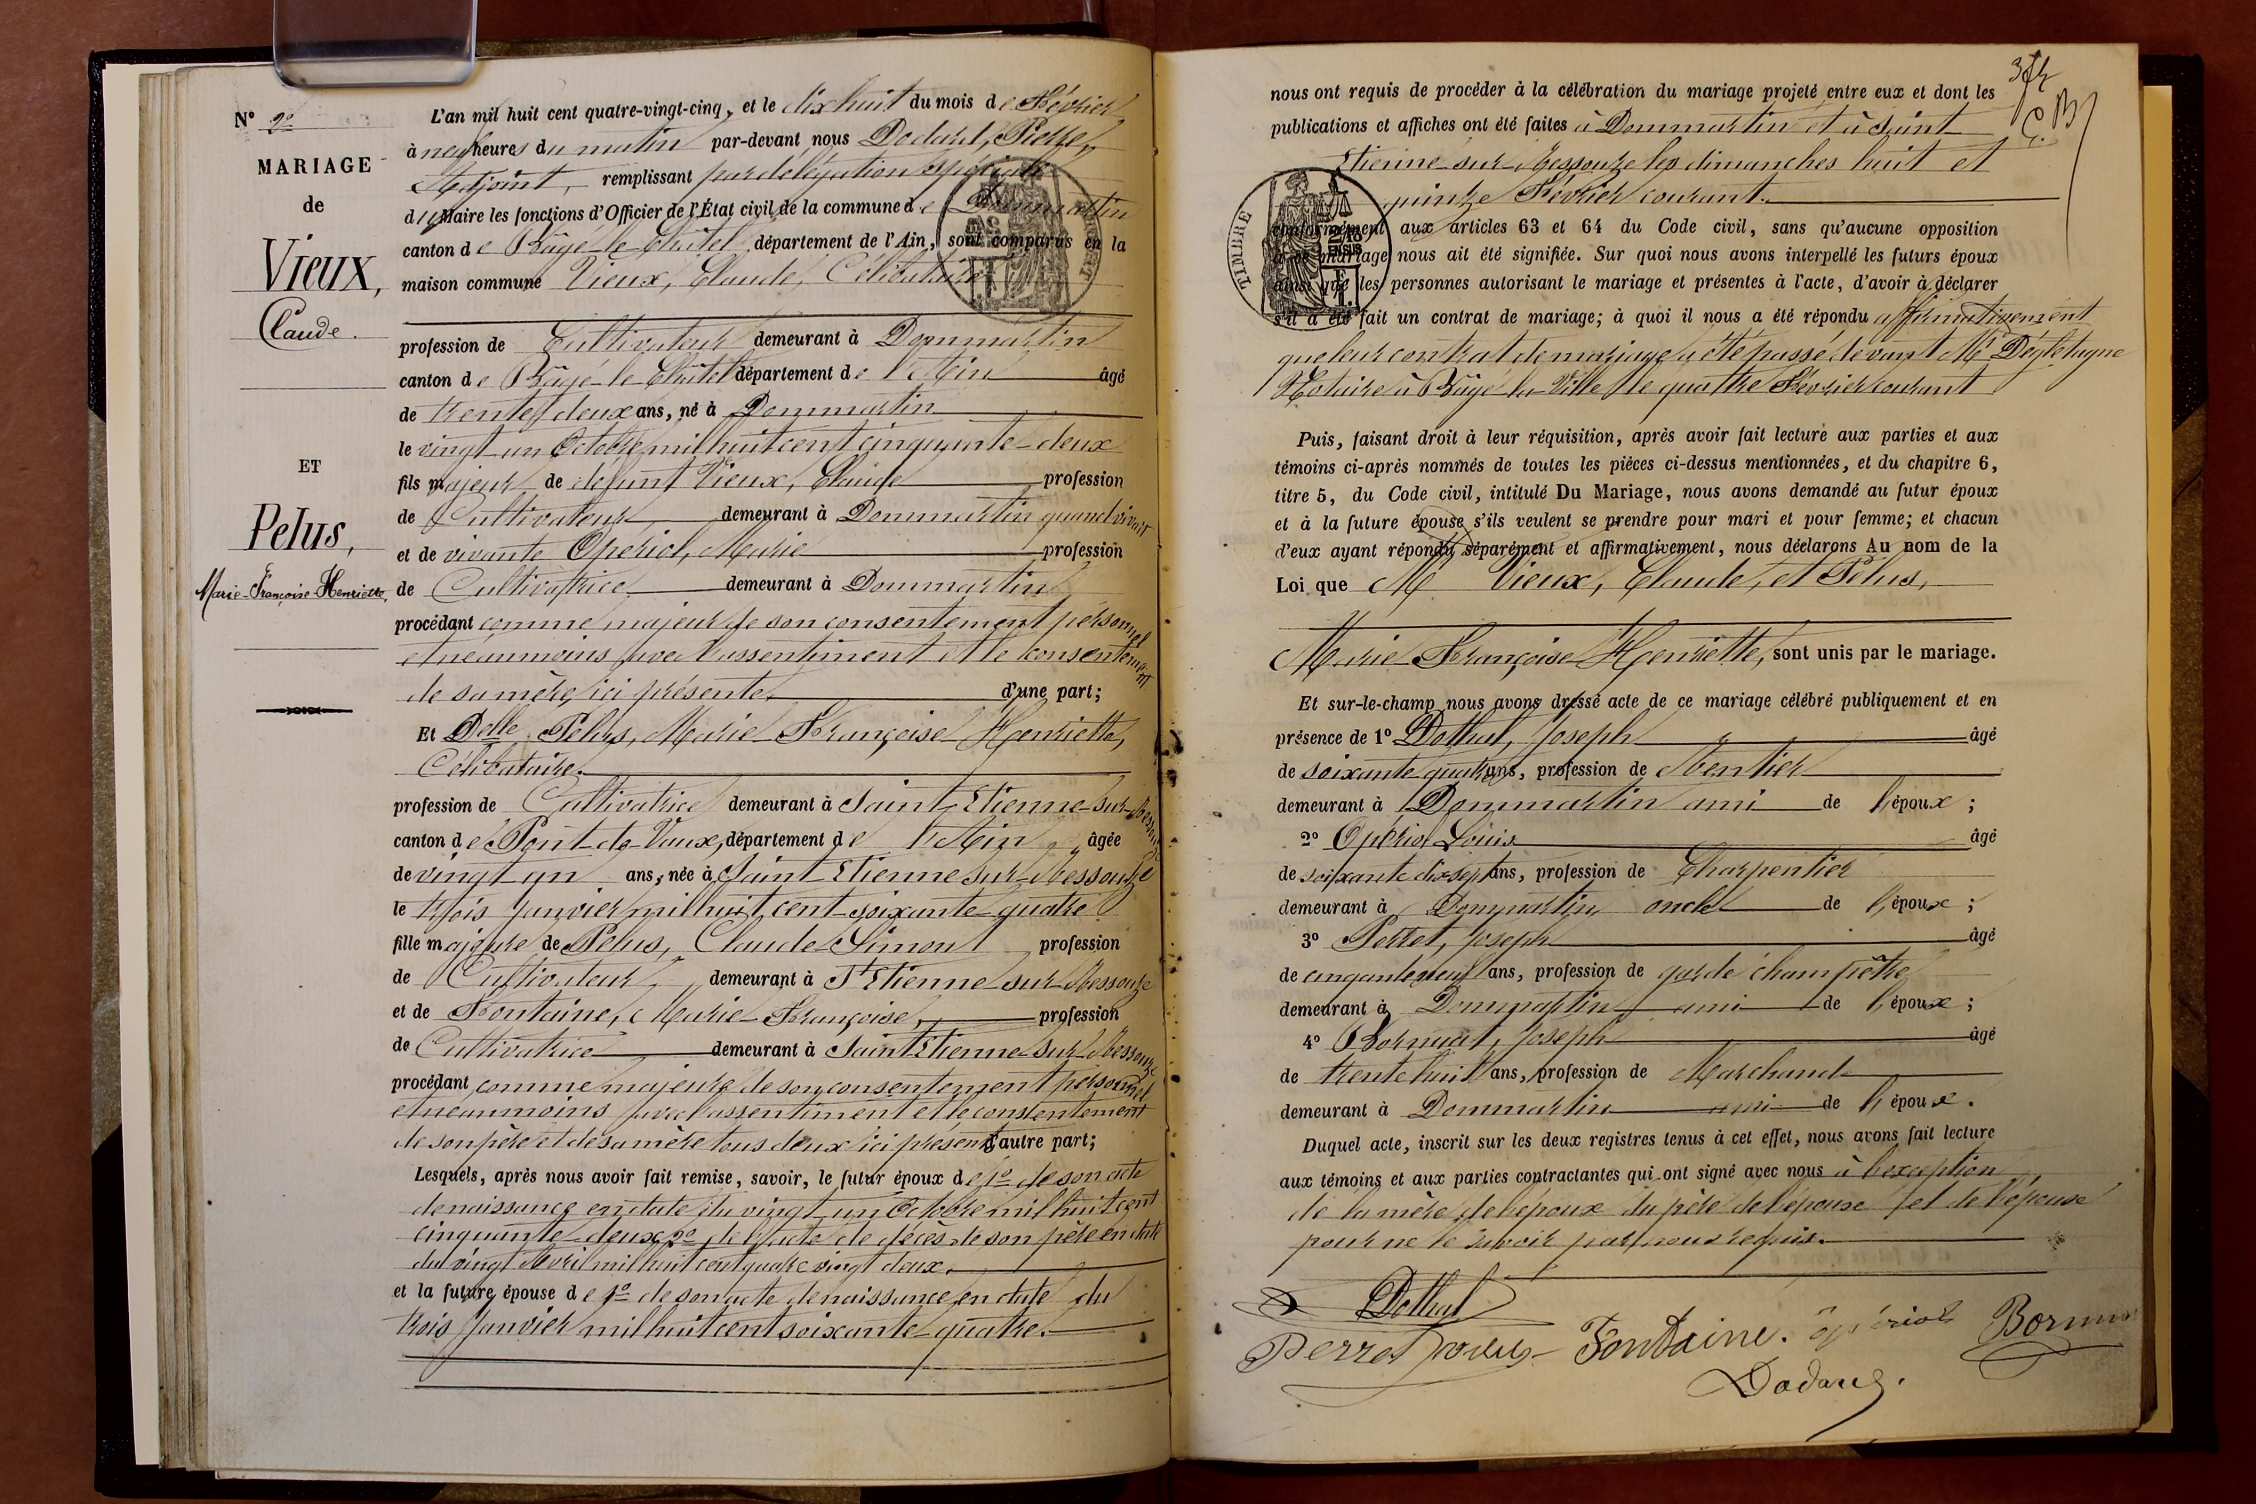 N° 2°
MARIAGE
de
Vieux,
Claude.
ET
Pelus,
Marie-Françoise-Henriette.
L'an mil huit cent quatre-vingt-cinq, et le dix huit du mois de Février
à neuf heures du matin par-devant nous Dodard, Pierre,
Adjoint, remplissant par délégation spéciale
du Maire les fonctions d'Officier de l'État civil de la commune de Dommartin
canton de Bâgé-le-Châtel, département de l'Ain, sont comparus en la
maison commune Vieux, Claude, Célibataire
profession de Cultivateur demeurant à Dommartin
canton de Bâgé-le-Châtel département de l'Ain âgé
de trente deux ans, né à Dommartin
le vingt un Octobre mil huit cent cinquante-deux
fils majeur de defunt Vieux, Claude profession
de Cultivateur demeurant à Dommartin quand vivait
et de vivante Opériol, Marie profession
de Cultivatrice demeurant à Dommartin
procédant comme majeur de son consentement personnel
et néanmoins avec l'assentiment et le consentement
de sa mère ici présente d'une part;
Et Delle Pelus, Marie-Françoise-Henriette,
Célibataire.
profession de Cultivatrice demeurant à Saint-Etienne-sur-Ressouze
canton de Pont-de-Vaux, département de l'Ain âgée
de vingt-un ans, née à Saint-Etienne-sur-Ressouze
le trois Janvier mil huit cent soixante-quatre
fille majeure de Pelus, Claude-Simon profession
de Cultivateur, demeurant à St Etienne-sur-Ressouze
et de Fontaine, Marie-Françoise, profession
de Cultivatrice demeurant à Saint Etienne-sur-Ressouze
procédant comme majeure de son consentement personnel
et néanmoins avec l'assentiment et le consentement
de son père et de sa mère tous deux ici présents d'autre part;
Lesquels, après nous avoir fait remise, savoir, le futur époux de 1° de son acte
de naissance en date du vingt-un Octobre mil huit cent
cinquante-deux, 2° de l'acte de décès de son père en date
du vingt Avril mil huit cent quatre vingt deux.
et la future épouse de 1° de son acte de naissance en date du
trois Janvier mil huit cent soixante-quatre.
nous ont requis de procéder à la célébration du mariage projeté entre eux et dont les
publications et affiches ont été faites à Dommartin et à Saint
Etienne-sur-Ressouze les dimanches huit et
quinze Février courant.
conformément aux articles 63 et 64 du Code civil, sans qu'aucune opposition
à ce mariage nous ait été signifiée. Sur quoi nous avons interpellé les futurs époux
ainsi que les personnes autorisant le mariage et présentes à l'acte, d'avoir à déclarer
s'il a été fait un contrat de mariage; à quoi il nous a été répondu affirmativement
que leur contrat de mariage a été passé devant Me Dégletagne
Notaire à Bâgé-la-Ville le quatre Février courant
TIMBRE
Puis, faisant droit à leur réquisition, après avoir fait lecture aux parties et aux
témoins ci-après nommés de toutes les pièces ci-dessus mentionnées, et du chapitre 6,
titre 5, du Code civil, intitulé Du Mariage, nous avons demandé au futur époux
et à la future épouse s'ils veulent se prendre pour mari et pour femme; et chacun
d'eux ayant répondu séparément et affirmativement, nous déclarons Au nom de la
Loi que M Vieux, Claude, et Pelus,
Marie-Françoise Henriette, sont unis par le mariage.
Et sur-le-champ nous avons dressé acte de ce mariage célébré publiquement et en
présence de 1° Dothal, Joseph âgé
de soixante quatre ans, profession de Rentier
demeurant à Dommartin ami de l'époux;
2° Opériol Louis âgé
de soixante dix-sept ans, profession de Charpentier
demeurant à Dommartin oncle de l'époux;
3° Perret, Joseph âgé
de cinquante neuf ans, profession de garde champêtre
demeurant à Dommartin ami de l'époux;
4° Bornuat, Joseph âgé
de trente huit ans, profession de Marchand
demeurant à Dommartin ami de l'époux.
Duquel acte, inscrit sur les deux registres tenus à cet effet, nous avons fait lecture
aux témoins et aux parties contractantes qui ont signé avec nous à l'exception
de la mère de l'époux du père de l'épouse et de l'épouse
pour ne le savoir par nous requis.
Dothal
Perret Fontaine. opériol
Dodard.